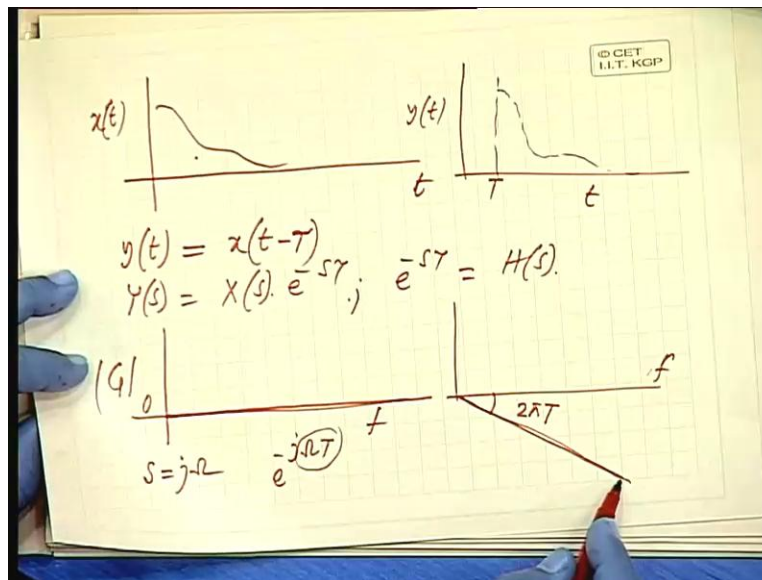 © CET
I.I.T. KGP
x(t)
t
y(t)
T
t
y(t) = x(t-T)
Y(s) = X(s). e^{-sT}; e^{-sT} = H(s).
|G|
0
f
f
2πT
s = jΩ e^{-jΩT}